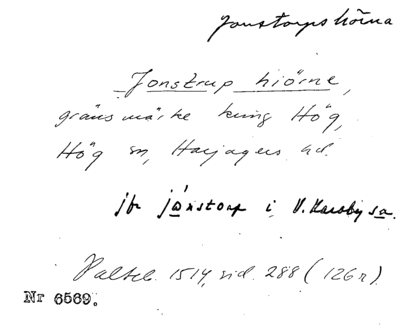 Jonstorps hörna
Jonstrup hiörne,
gränsmärke kring Hög,
Hög sn, Harjagers hd.
jfr jónstorp i V. Karaby sn.
Palteb. 1514, sid. 288 (126 r).
Nr 6569.